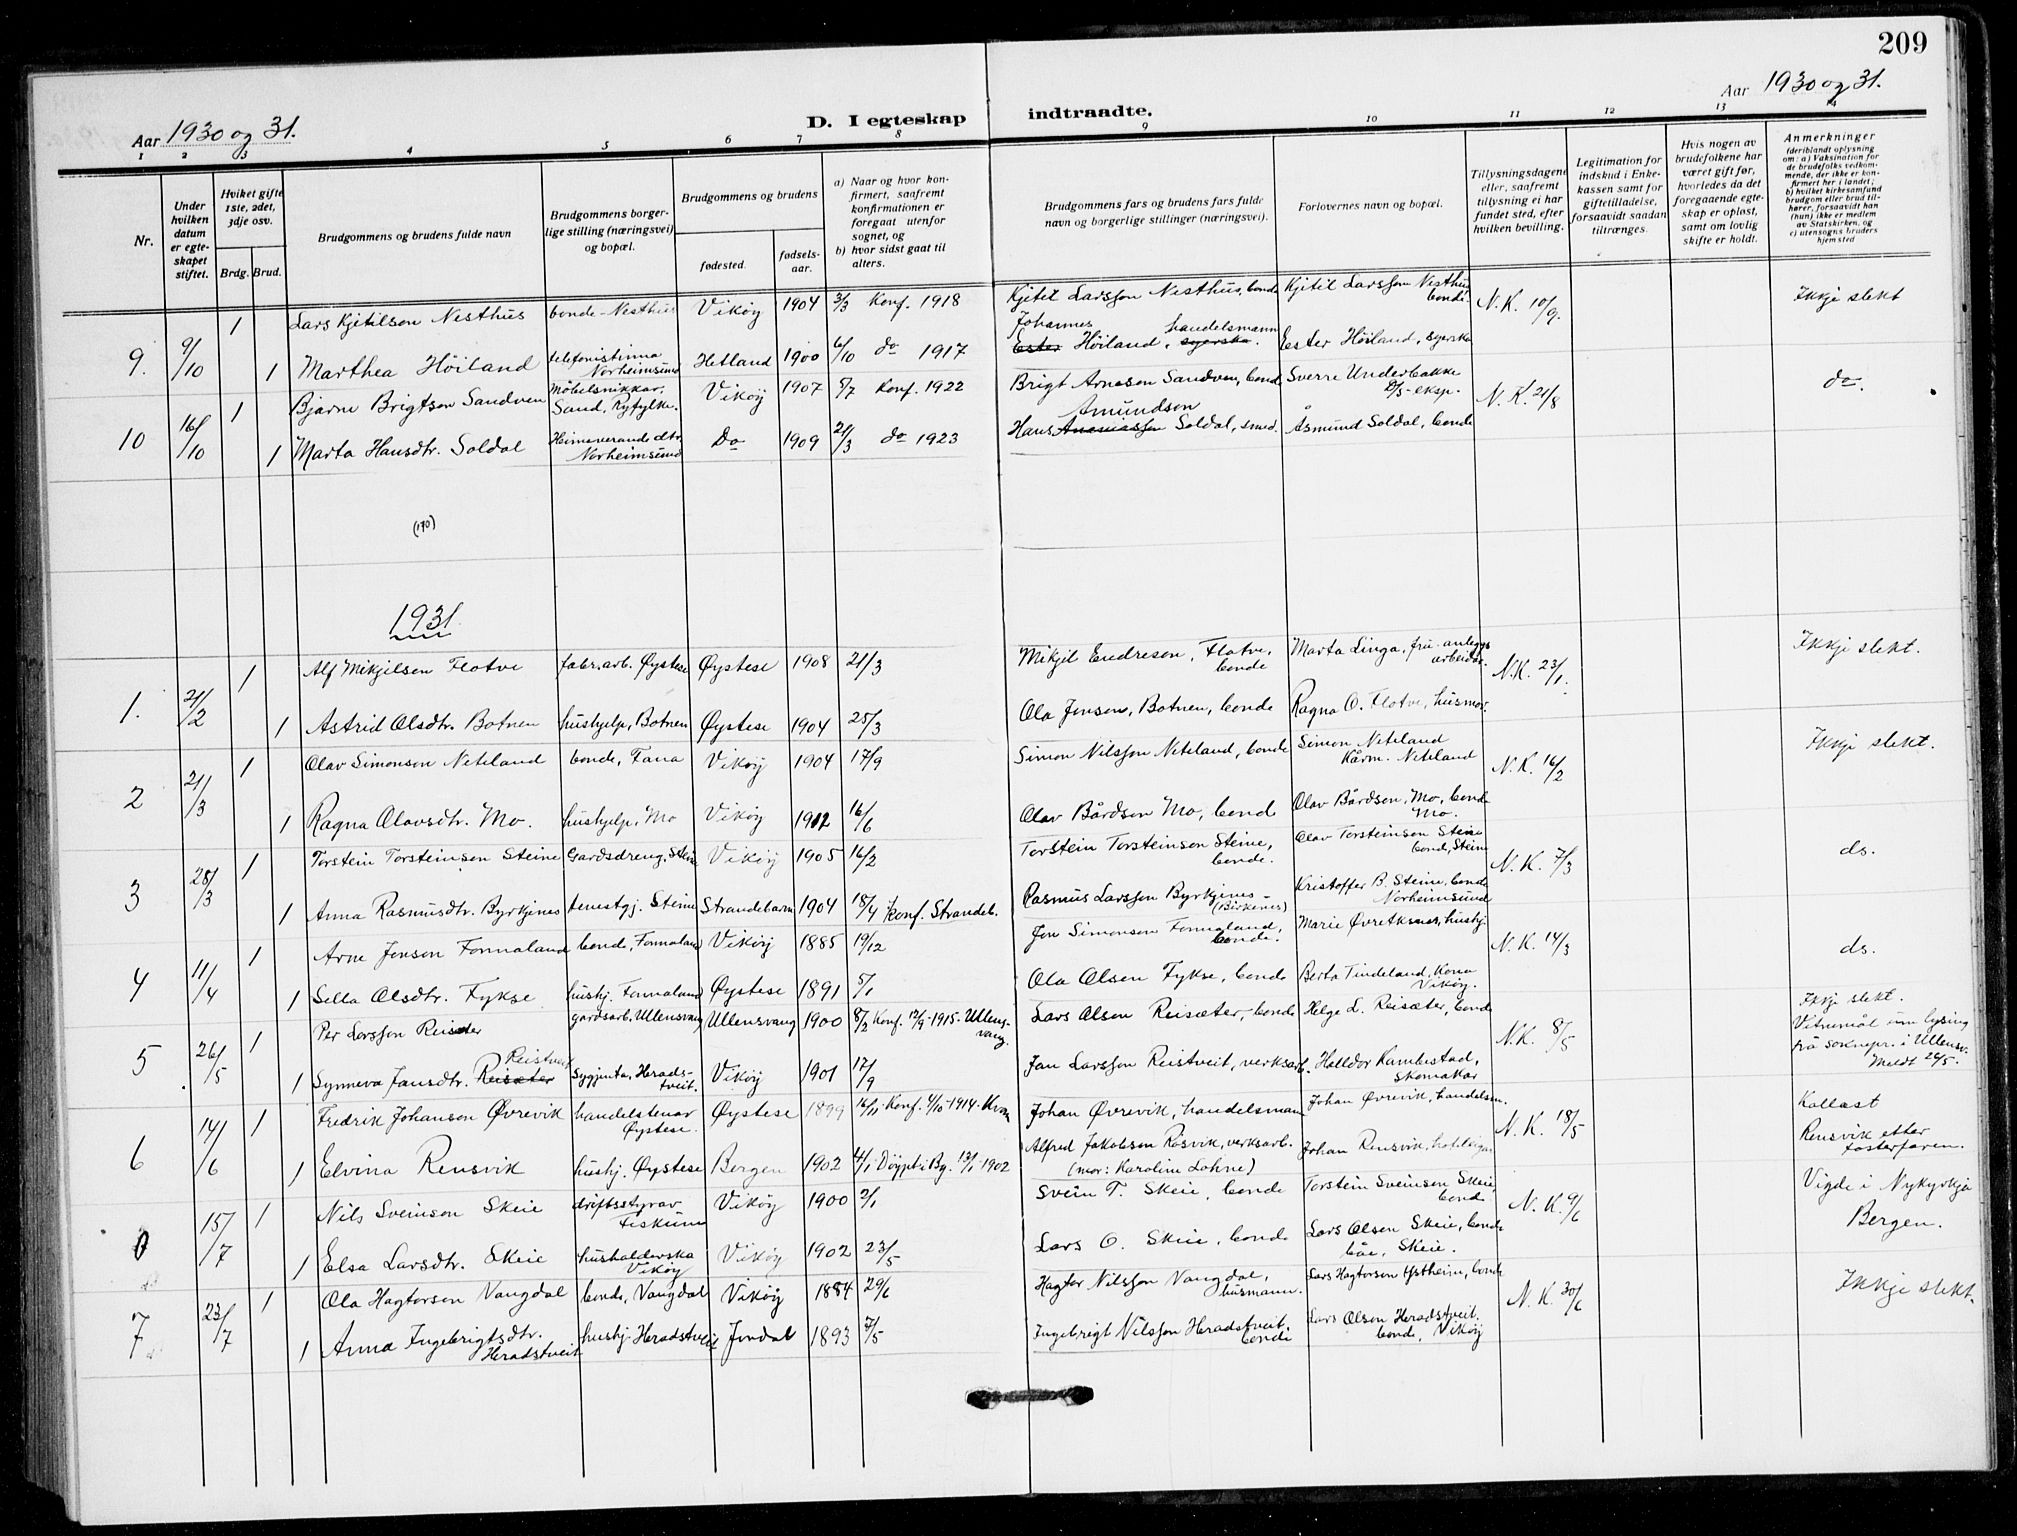 209
Aar 1930 og 31.
D. I egteskap indtraadte.
Aar 1930 og 31.
1 2 3 4 5 6 7 8 9 10 11 12 13 14
Nr.
Under hvilken datum er egteskapet stiftet.
Hviket gifte 1ste, 2det, 3dje osv.
Brdg. Brud.
Brudgommens og brudens fulde navn
Brudgommens borgerlige stilling (næringsvei) og bopæl.
Brudgommens og brudens
fødested.
fødselsaar.
a) Naar og hvor konfirmert, saafremt konfirmationen er foregaat utenfor sognet, og
b) hvor sidst gaat til alters.
Brudgommens fars og brudens fars fulde navn og borgerlige stillinger (næringsvei).
Forlovernes navn og bopæl.
Tillysningsdagene eller, saafremt tillysning ei har fundet sted, efter hvilken bevilling.
Legitimation for indskud i Enkekassen samt for giftetilladelse, forsaavidt saadan tiltrænges.
Hvis nogen av brudefolkene har været gift før, hvorledes da det foregaaende egteskap er opløst, samt om lovlig skifte er holdt.
Anmerkninger (deriblandt oplysning om: a) Vaksination for de brudefolks vedkommende, der ikke er konfirmert her i landet; b) hvilket kirkesamfund brudgom eller brud tilhører, forsaavidt han (hun) ikke er medlem av Statskirken, og c) utensogns bruders hjemsted
9. 9/10 1 Lars Kjetilson Nesthus bonde - Nesthus Vikøy 1904 3/3 Konf. 1918 Kjetil Larsson Nesthus, bonde Kjetil Larsson Nesthus bonde. N.K. 10/9. Ikkje slekt
1 Marthea Höiland telefonistinna Norheimsund Hetland 1900 6/10 do 1917 Johannes Ester Höiland, handelsmann syerska. Ester Höiland, syerska
10 16/10 1 Bjarne Brigtson Sandven Möbelsnikkar, Sand, Ryfylke. Vikøy 1907 5/7 Konf. 1922 Brigt Arneson Sandven, bonde Sverre Underbakke D/S-eksp. N.K. 21/8 do.
1 Marta Hansdtr. Soldal Heimeverande dtr. Norheimsund Do 1909 21/3 do 1923 Hans Amundson Soldal, smed. Åsmund Soldal, bonde
(170)
1931
1. 21/2 1 Alf Mikjelsen Flotve fabr.arb. Øystese Øystese 1908 21/3 Mikjel Endreson, Flotve, bonde Marta Linga, fru - anleggsarbeidar. N.K. 23/1. Ikkje slekt.
1 Astrid Olsdtr. Botnen hushjelp, Botnen Øystese 1904 25/3 Ola Jonson, Botnen, bonde Ragna O. Flotve, husmor.
2 21/3 1 Olav Simonson Neteland bonde, Fana Vikøy 1904 17/9 Simon Nilsson Neteland, bonde Simon Neteland Kårm. Neteland N.K. 16/2 Ikkje slekt.
1 Ragna Olavsdtr. Mo. hushjelp, Mo Vikøy 1912 16/6 Olav Bårdson Mo, bonde Olav Bårdson, Mo, bonde Mo.
3 28/3 1 Torstein Torsteinson Steine Gardsdreng, Steine Vikøy 1905 16/2 Torstein Torsteinson Steine, bonde. Olav Torsteinson Steine bonde, Steine N.K. 7/3 ds.
1 Anna Rasmusdtr. Byrkjenes tenestgj. Steine Strandebarm 1904 18/4 Konf. Strandeb. Rasmus Larsson Byrkjenes - (Birkenes) Kristoffer B. Steine, bonde Norheimsund
4 11/4 1 Arne Jonson Fonnaland bonde, Fonnaland Vikøy 1885 19/12 Jon Simonson Fonnaland, bonde. Marie Øvretknes, hushj. N.K. 14/3 ds.
1 Sella Olsdtr. Fykse hushj. Fonnaland Øystese 1891 5/1 Ola Olsen Fykse, bonde Berta Tindeland, Kona Vikøy.
5 26/5 1 Per Larsson Reisæter gardsarb. Ullensvang Ullensvang 1900 8/2 Konf. 12/9-1915- Ullensvang. Lars Olsen Reisæter, bonde Helge L. Reisæter, bonde N.K. 8/5 Ikkje slekt. Vitnemål um lysing frå sokneprest i Ullensv. Meldt 26/5.
1 Synneva Jansdtr. Reisæter Reistveit Sygjenta, Heradstveit. Vikøy 1901 17/9 Jan Larsson Reistveit, verksarb. Halldor Kambestad, skomakar
6 14/6 1 Fredrik Johanson Øvrevik handelstenar Øystese. Øystese 1899 16/11 - Konf. 4/10-1914-Kvam Johan Øvrevik, handelsmann Johan Øvrevik, handelsm. N.K. 18/5 Kallast Rensvik etter fosterfaren.
1 Elvina Rensvik hushj. Øystese Bergen 1902 4/1 Döypt i Bg. 13/1-1902 Alfred Jakobson Røsvik, verksarb. (mor: Karoline Lohne) Johan Rensvik, hotelleigar
0 15/7 1 Nils Sveinson Skeie driftsstyrar Fiskum Vikøy 1900 2/1 Svein T. Skeie, bonde Torstein Sveinson Skeie, bonde N.K. 9/6 Vigde i Nykyrkja Bergen.
1 Elsa Larsdtr. Skeie husholderska Vikøy Vikøy 1902 23/5 Lars O. Skeie, bonde Lars Olsen Skeie, bonde båe, Skeie.
7 23/7 1 Ola Hagtorson Vangdal bonde, Vangdal Vikøy 1884 29/6 Hagtor Nilsson Vangdal, husmann. Lars Hagtorson Ystheim, bonde N.K. 30/6 Ikkje slekt.
1 Anna Ingebrigtsdtr. Heradstveit hushj. Heradstveit Jondal 1893 7/5 Ingebrigt Nilsson Heradstveit. bonde Lars Olsen Heradstveit. bonde, Vikøy